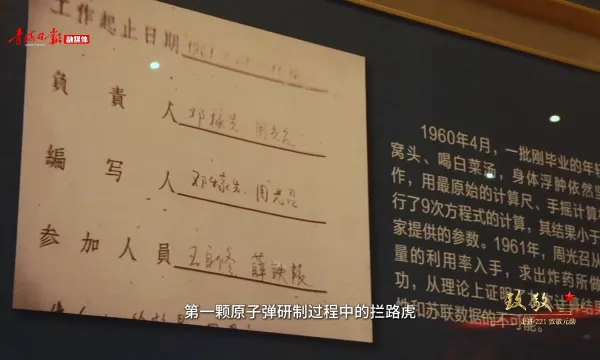 青海日报 融媒体
工作起止日期
負責人 邓稼先 周光召
編写人 邓稼先、周光召
参加人員
1960年4月，一批刚毕业的年轻
窝头、喝白菜汤，身体浮肿依然坚
作，用最原始的计算尺、手摇计算
行了9次方程式的计算，其结果小于
家提供的参数。1961年，周光召从
量的利用率入手，求出炸药所做
功，从理论上证明
计算结果
和苏联数据的不可能。
致敬
走进·221 致敬元勋
第一颗原子弹研制过程中的拦路虎